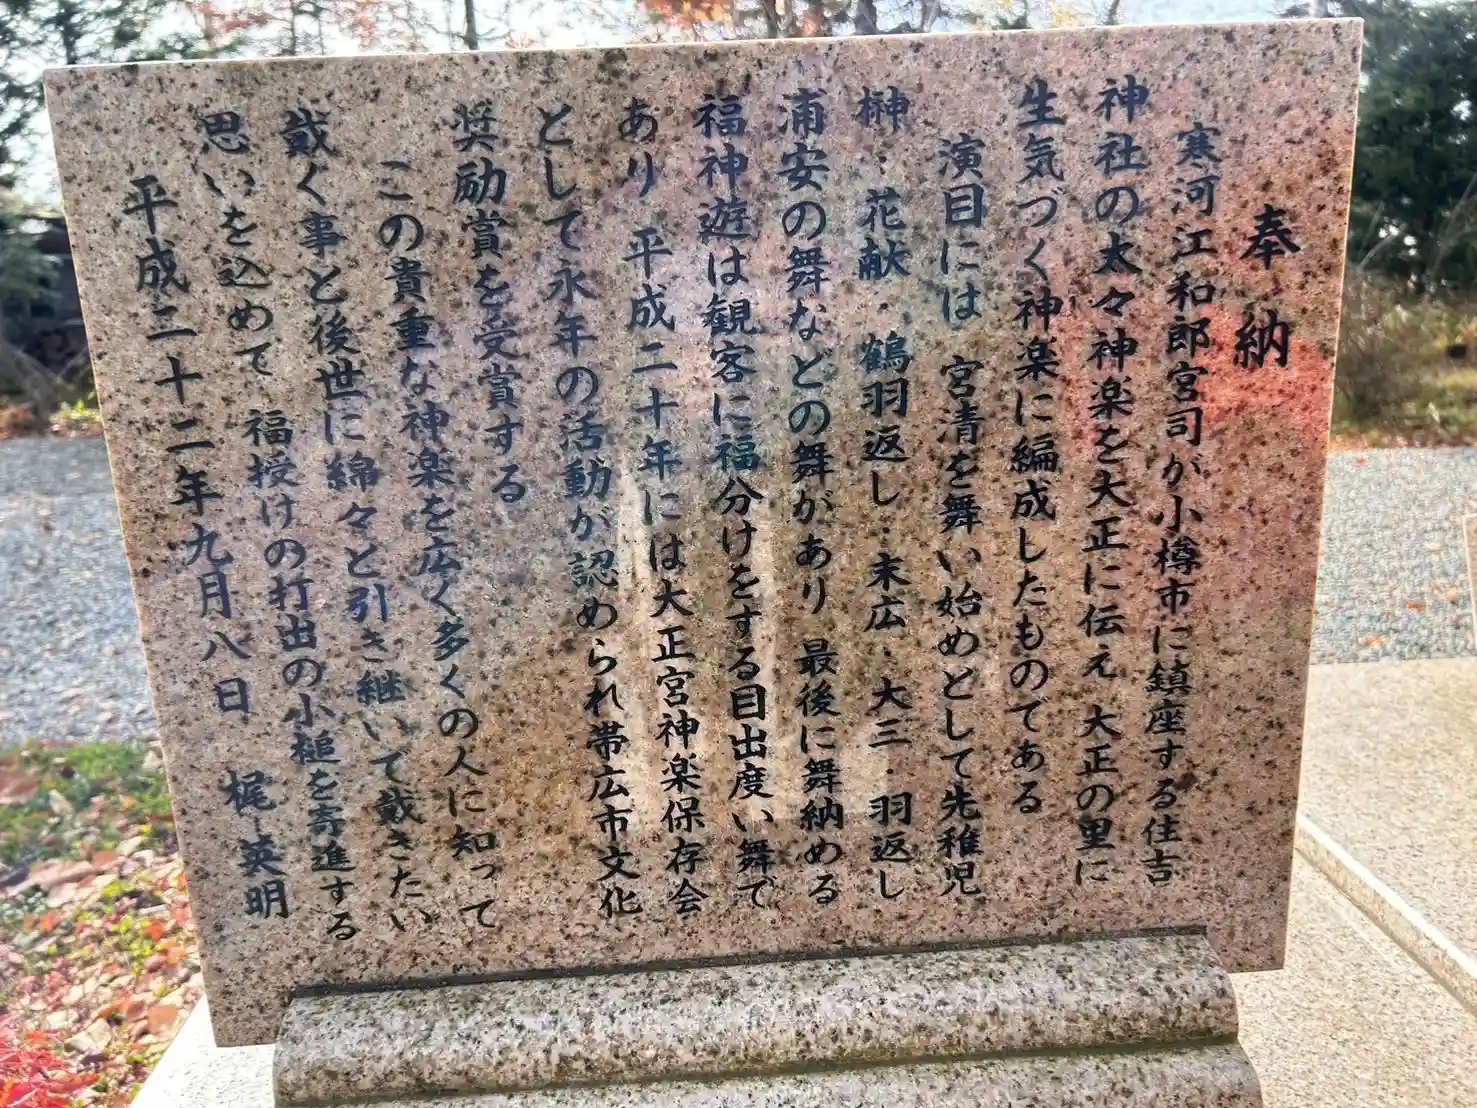 奉納
寒河江和郎宮司が小樽市に鎮座する住吉
神社の太々神楽を大正に伝え 大正の里に
生気づく神楽に編成したものである
演目には 宮清を舞い始めとして先稚児
榊・花献・鶴羽返し・末広・大三・羽返し
浦安の舞などの舞があり 最後に舞納める
福神遊は観客に福分けをする目出度い舞で
あり 平成二十年には大正宮神楽保存会
として永年の活動が認められ帯広市文化
奨励賞を受賞する
この貴重な神楽を広く多くの人に知って
戴く事と後世に綿々と引き継いで戴きたい
思いを込めて 福授けの打出の小槌を寄進する
平成二十二年九月八日 梶 英明